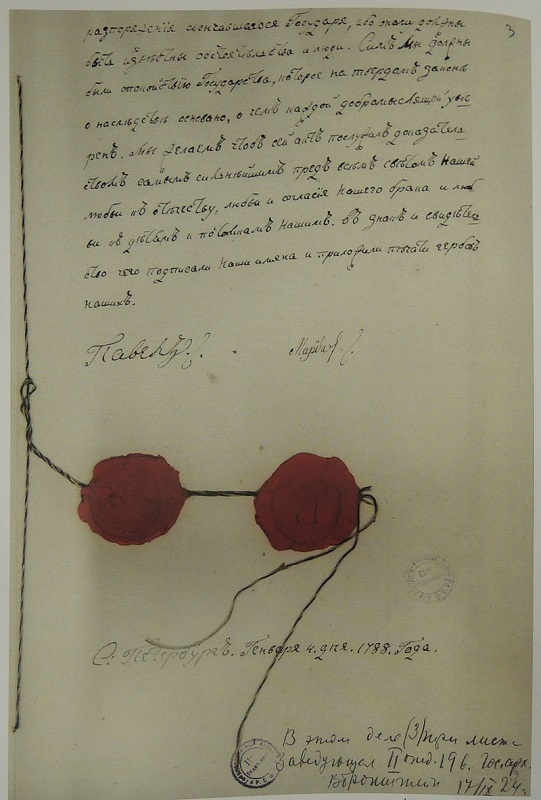 3
разпоряженія скончавшагося Государя, ибо онаги должны
быть извѣстны обстоятельства и люди. Симъ Мы должны
были спокойствію Государства, которое на твердомъ законѣ
о наслѣдствѣ основано, о чемъ каждой добромыслящей увѣ
ренъ. Мы желаемъ чтобъ сей актъ послужилъ доказатель
ствомъ самымъ сильнѣйшимъ предъ всѣмъ свѣтомъ нашей
любви къ отечеству, любви и согласія нашего брака и люб
ви къ дѣтямъ и потомкамъ нашимъ. Въ знакъ и свидѣтель
ство чего подписали наши имяна и приложили печати гербовъ
нашихъ.
Павелъ
Марія
С. Петербургъ. Генваря 4. дня. 1788. Года.
В этом деле (3) три листа
Заведующ II отд. 19 б. Госарх.
17/IX 24